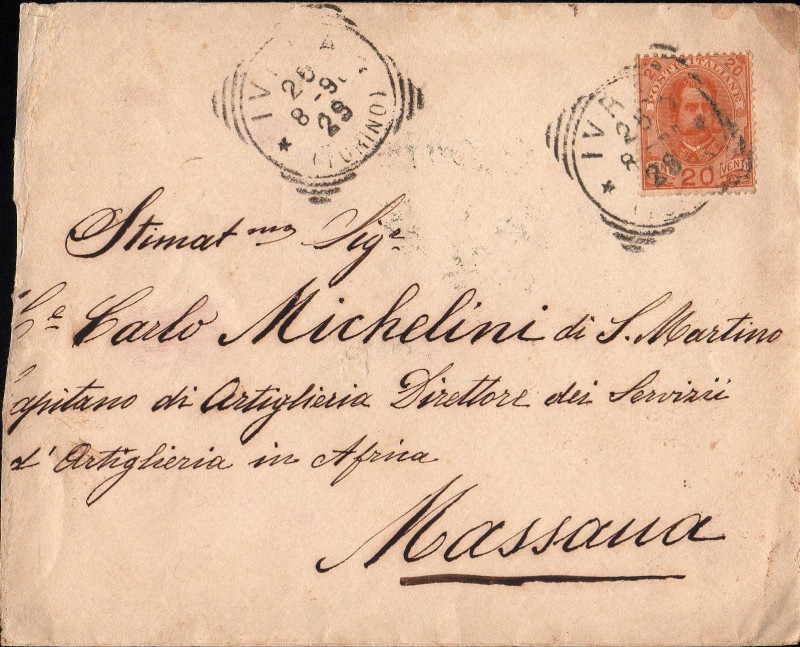 IVREA
25
8-9
29
(TORINO)
20 20
POSTE ITALIANE
20
IVR
25
8
29
Stimat mo Sigr
Carlo Michelini di S. Martino
apitano di Artiglieria Direttore dei Servizii
d' Artiglieria in Africa
Massaua